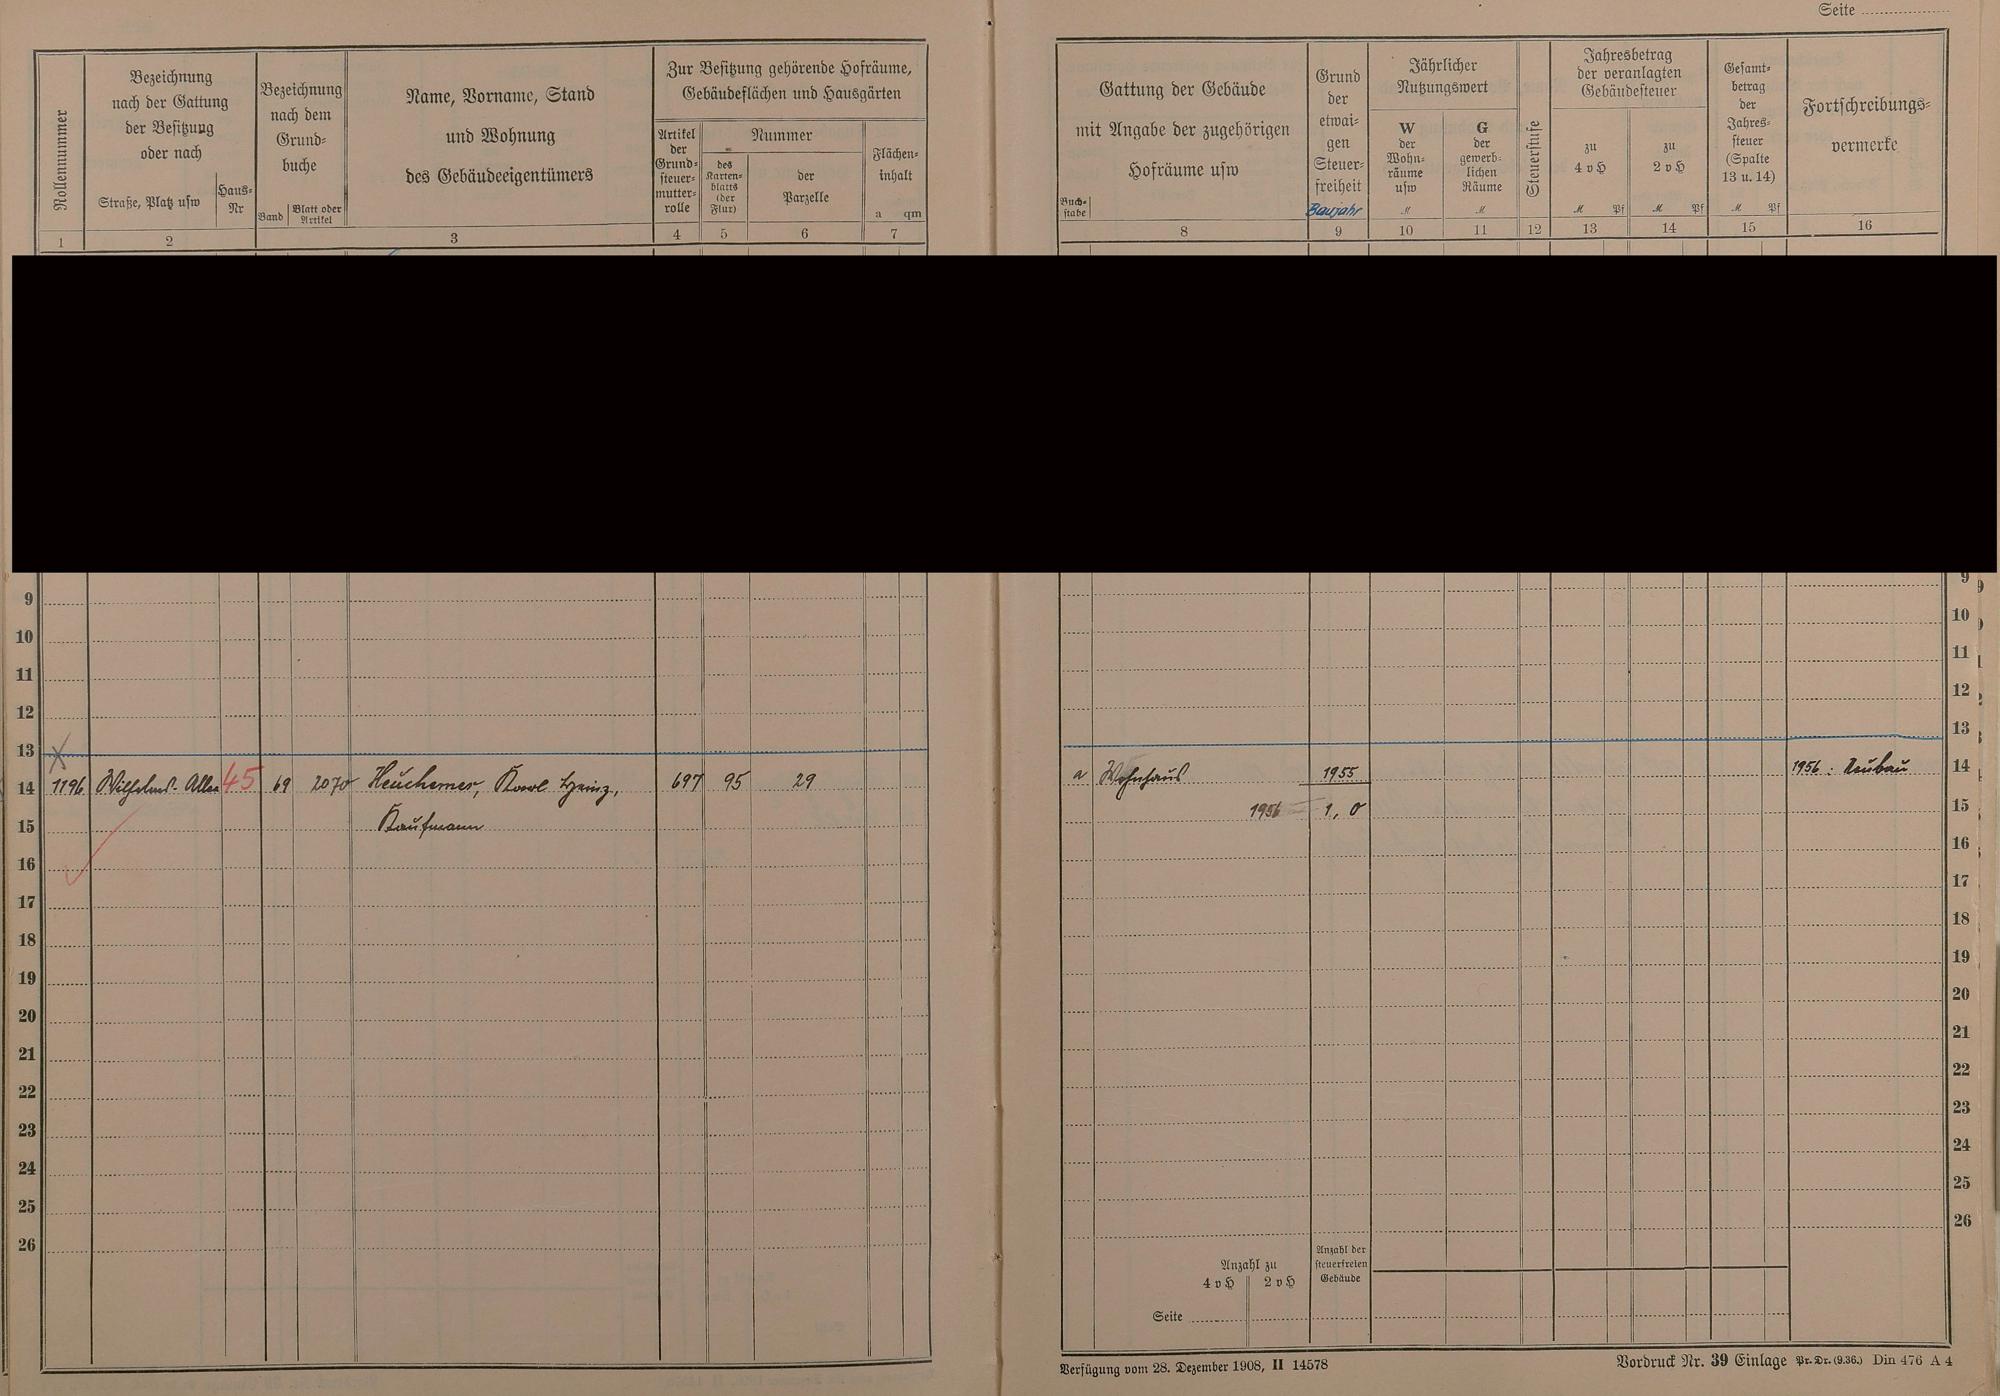 Seite
Rollennummer
Bezeichnung
nach der Gattung
der Besitzung
oder nach
Straße, Platz usw
Haus-
Nr
Bezeichnung
nach dem
Grund-
buche
Band
Blatt oder
Artikel
Name, Vorname, Stand
und Wohnung
des Gebäudeeigentümers
Zur Besitzung gehörende Hofräume,
Gebäudeflächen und Hausgärten
Artikel
der
Grund-
steuer-
mutter-
rolle
Nummer
des
Karten-
blatts
(der
Flur)
der
Parzelle
Flächen-
inhalt
a qm
1 2 3 4 5 6 7
Gattung der Gebäude
mit Angabe der zugehörigen
Hofräume usw
Buch-
stabe
Grund
der
etwai-
gen
Steuer-
freiheit
Baujahr
Jährlicher
Nutzungswert
W
der
Wohn-
räume
usw
M
G
der
gewerb-
lichen
Räume
M
Steuerstufe
Jahresbetrag
der veranlagten
Gebäudesteuer
zu
4 v H
M Pf
zu
2 v H
M Pf
Gesamt-
betrag
der
Jahres-
steuer
(Spalte
13 u. 14)
M Pf
Fortschreibungs-
vermerke
8 9 10 11 12 13 14 15 16
9
10
11
12
13
14 1196 Wilhelms-Allee 45 69 2070 Heuchemer, Karl Heinz, 697 95 29
15 Kaufmann
16
17
18
19
20
21
22
23
24
25
26
9
10
11
12
13
a Wohnhaus 1955 1956: Neubau 14
1956 1,0 15
16
17
18
19
20
21
22
23
24
25
26
Anzahl zu
4 v H 2 v H
Anzahl der
steuerfreien
Gebäude
Seite
Verfügung vom 28. Dezember 1908, II 14578
Vordruck Nr. 39 Einlage Pr. Dr. (9.36.) Din 476 A 4